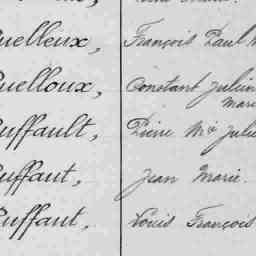 uelleux, François Paul
uelloux, Constant Julien
Mari
uffault, Pierre Mie Juli
uffaut, Jean Marie.
uffaut, Louis François